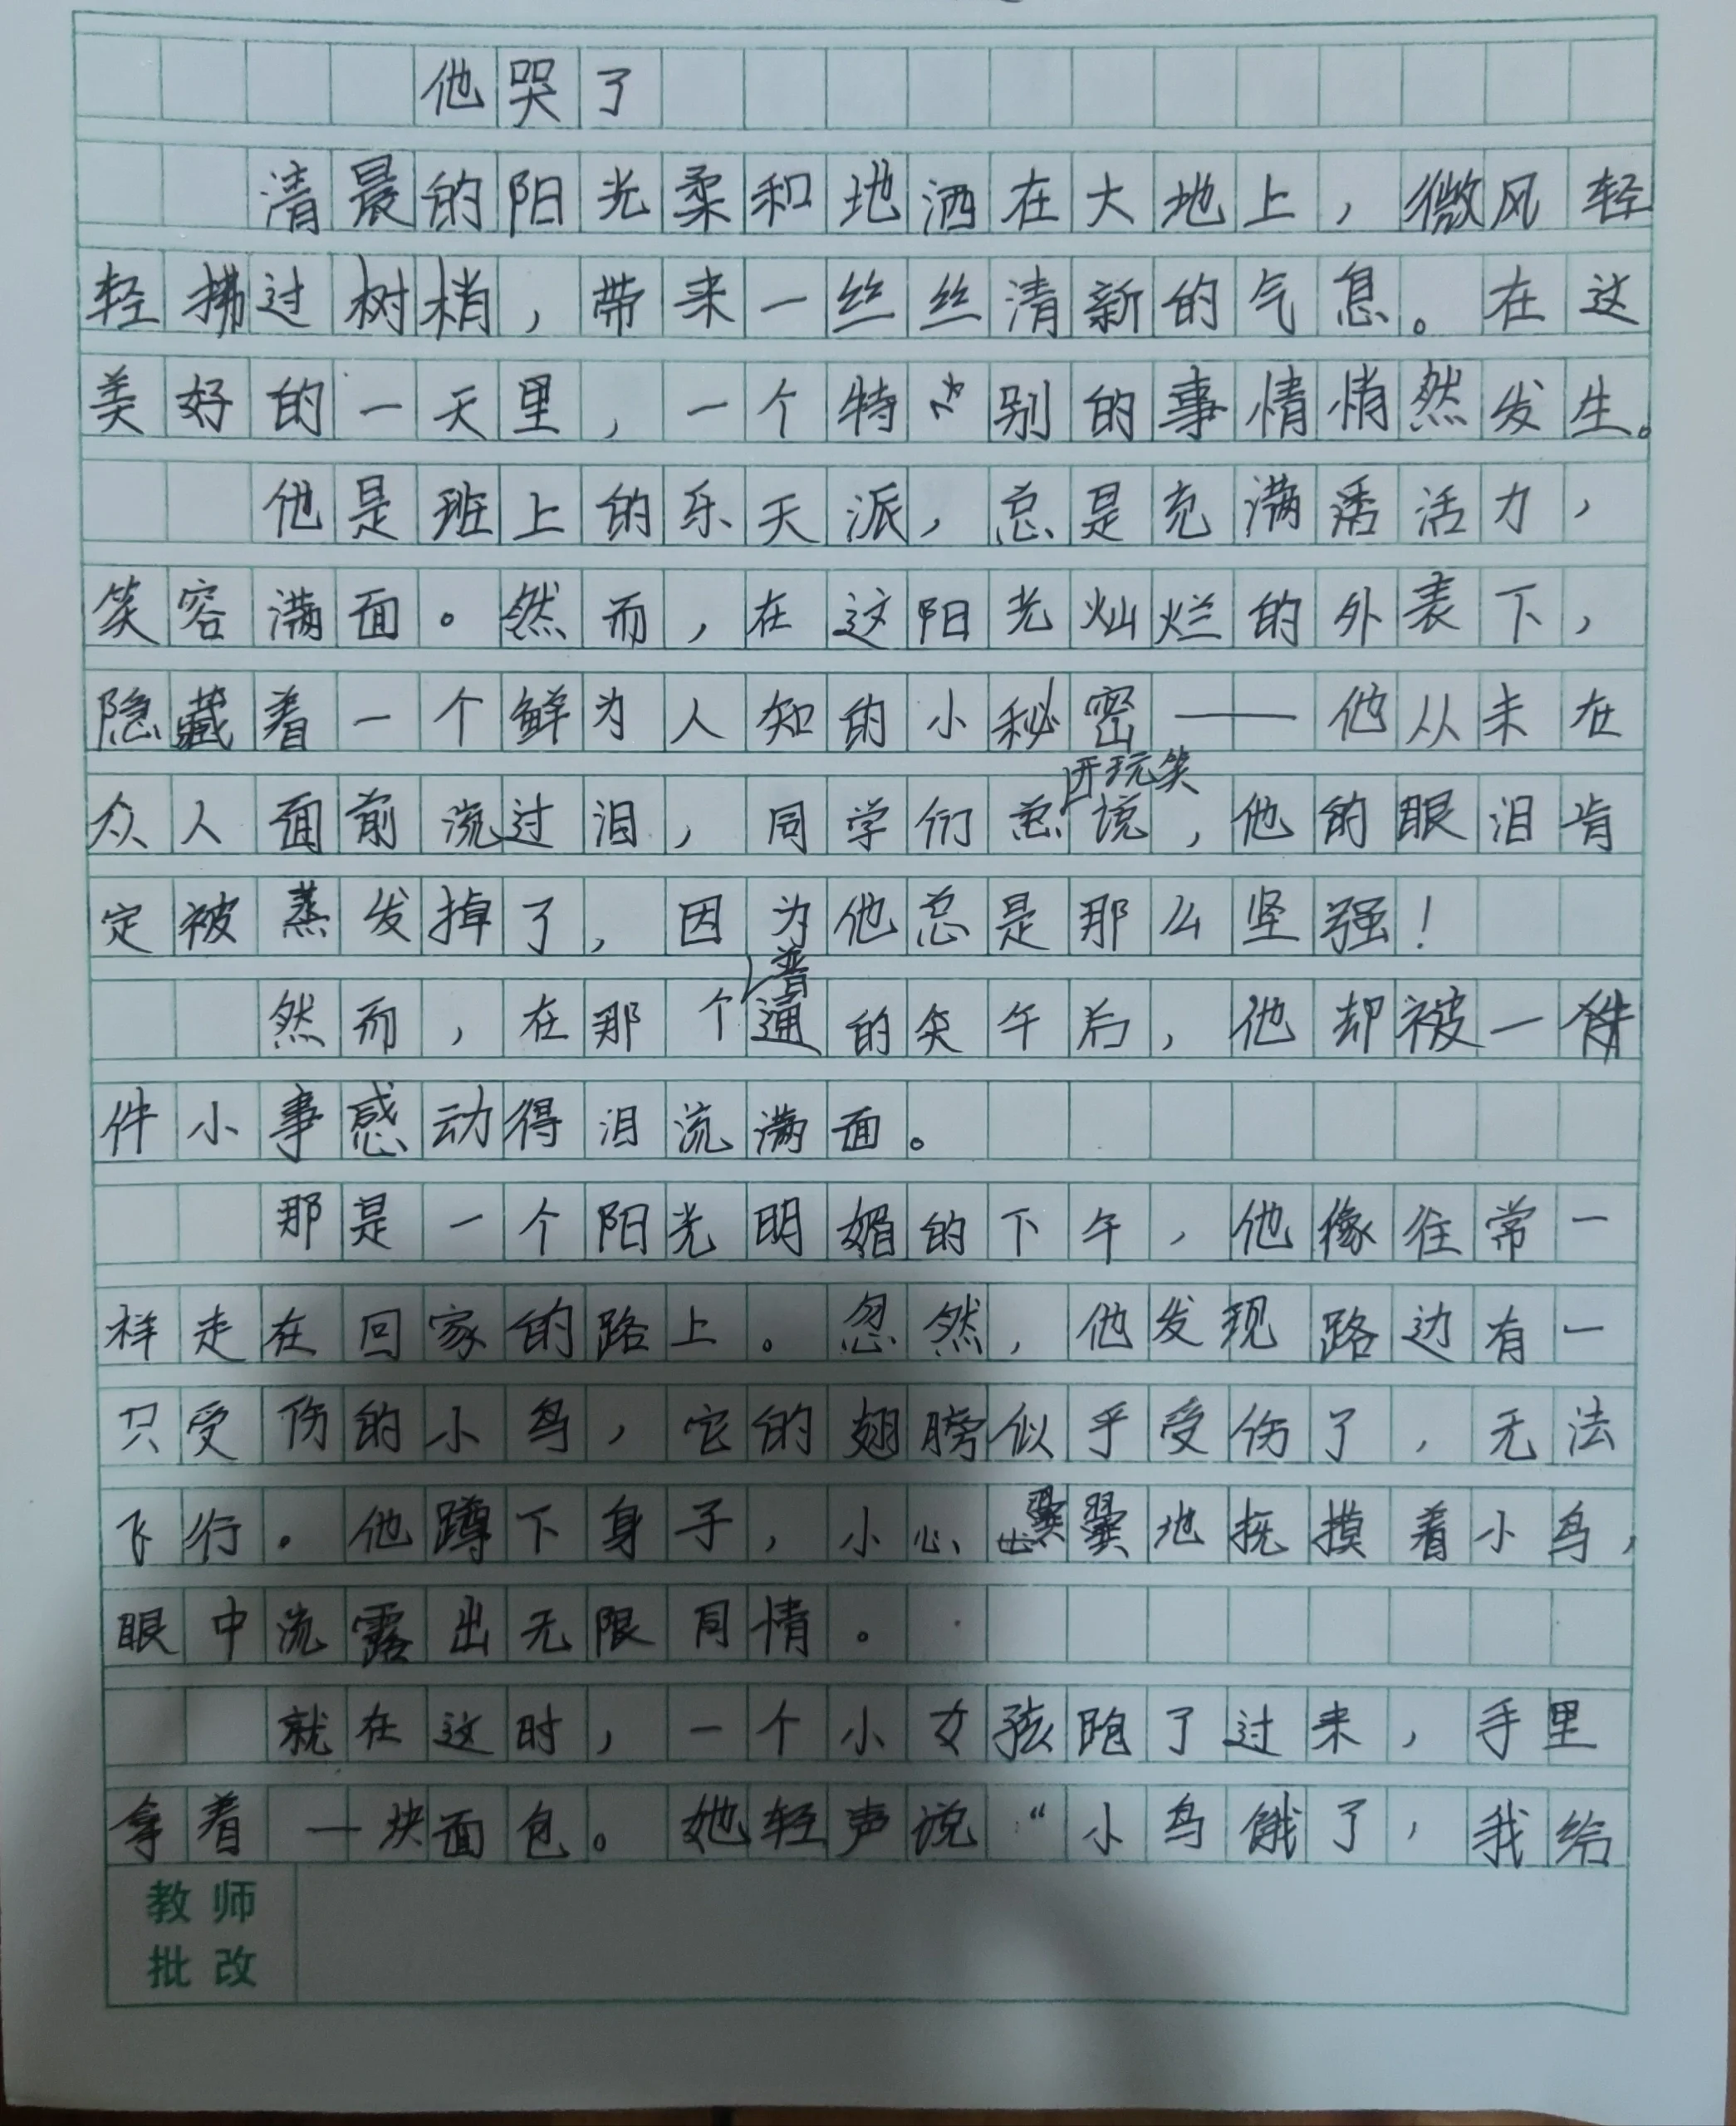 他哭了
清晨的阳光柔和地洒在大地上，微风轻
轻拂过树梢，带来一丝丝清新的气息。在这
美好的一天里，一个特别的事情悄然发生。
他是班上的乐天派，总是充满活力，
笑容满面。然而，在这阳光灿烂的外表下，
隐藏着一个鲜为人知的小秘密——他从未在
众人面前流过泪，同学们总开玩笑说，他的眼泪肯
定被蒸发掉了，因为他总是那么坚强！
然而，在那个普通的午后，他却被一
件小事感动得泪流满面。
那是一个阳光明媚的下午，他像往常一
样走在回家的路上。忽然，他发现路边有一
只受伤的小鸟，它的翅膀似乎受伤了，无法
飞行。他蹲下身子，小心翼翼地抚摸着小鸟，
眼中流露出无限同情。
就在这时，一个小女孩跑了过来，手里
拿着一块面包。她轻声说“小鸟饿了，我给
教师
批改